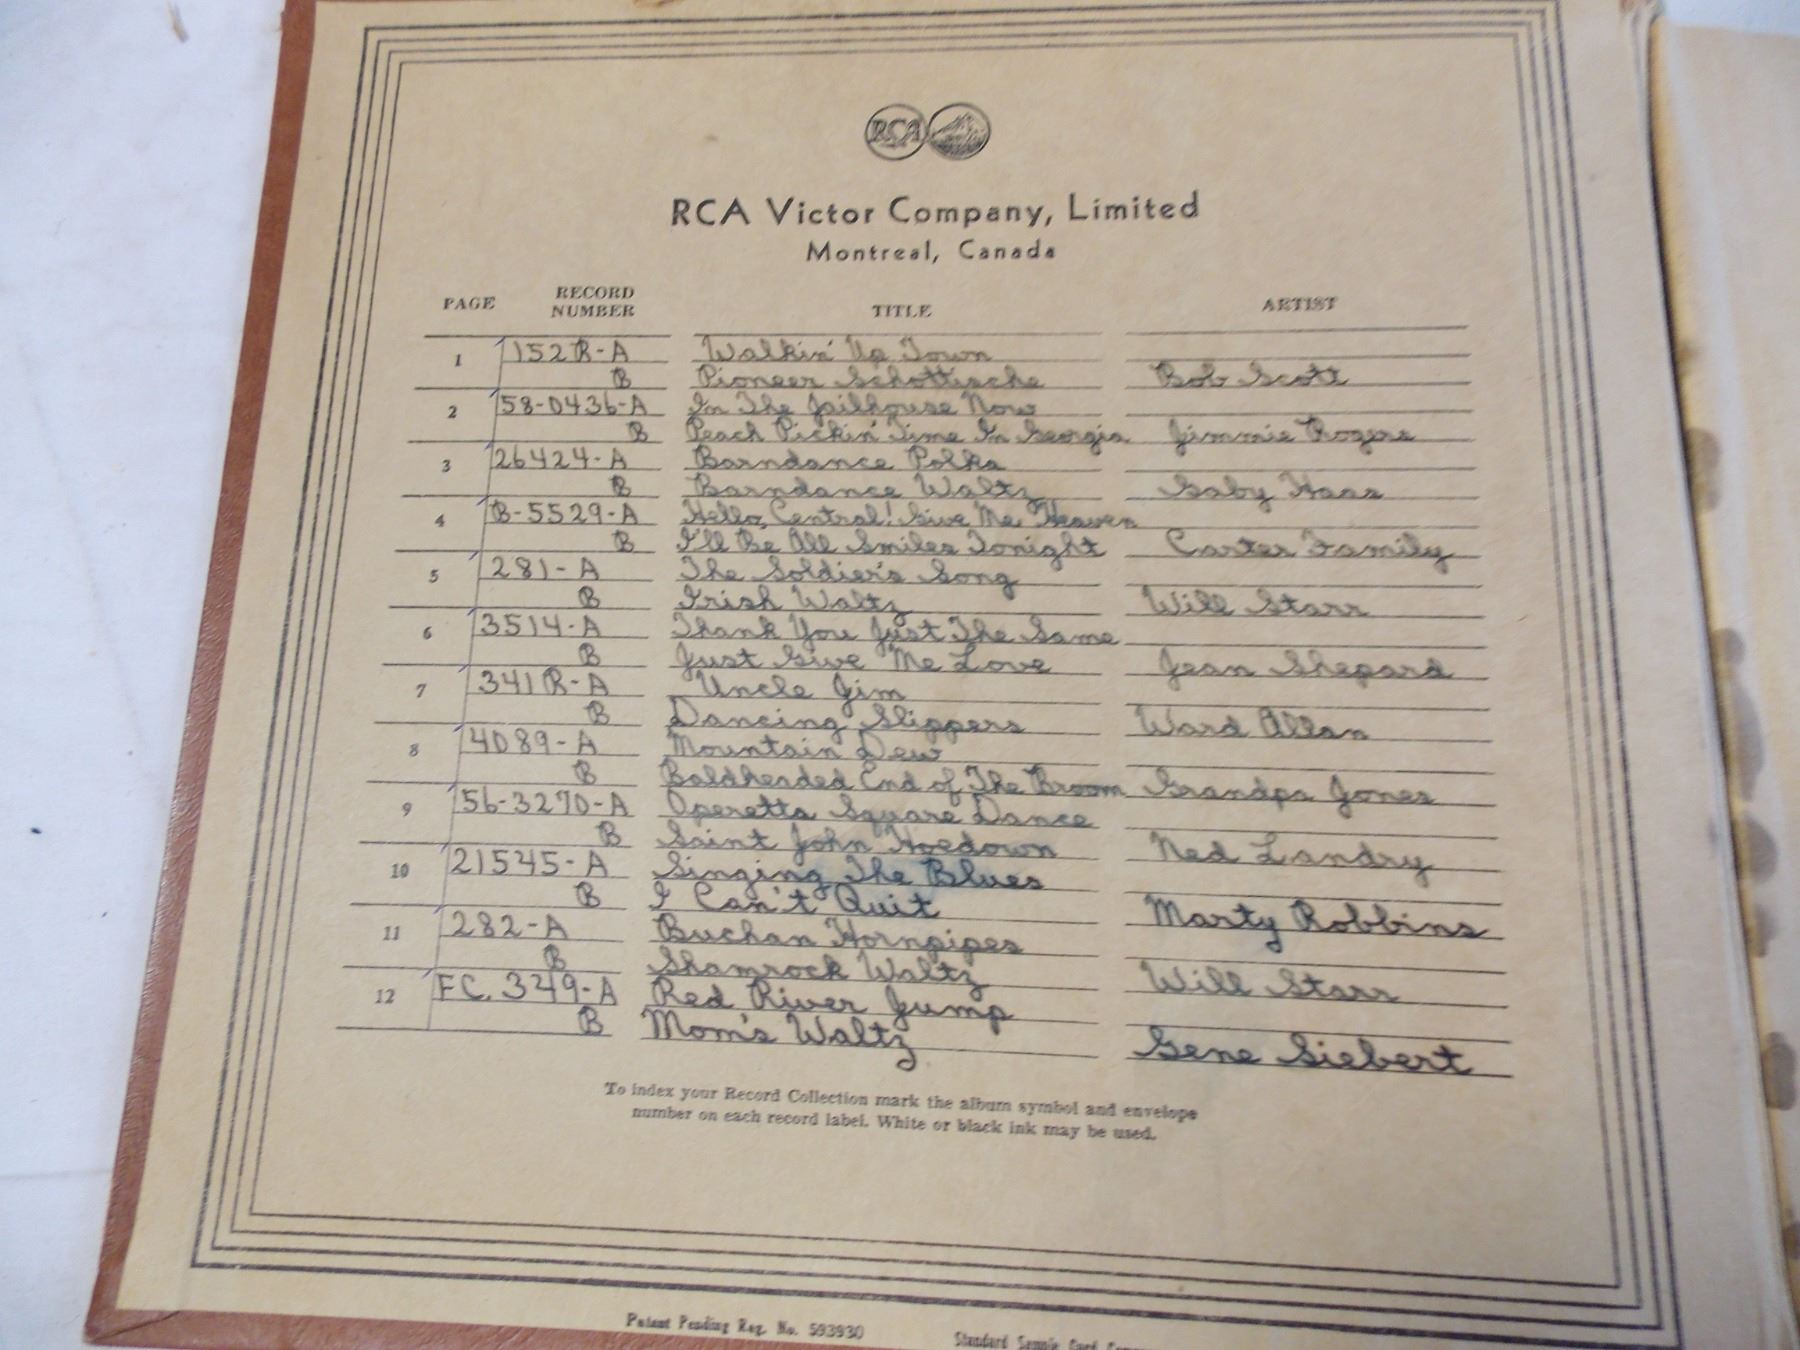 RCA
RCA Victor Company, Limited
Montreal, Canada
PAGE RECORD NUMBER TITLE ARTIST
1 152R-A Walkin' Up Town
B Pioneer Schottische Bob Scott
2 58-0436-A In The Jailhouse Now
B Peach Pickin' Time In Georgia Jimmie Rogers
3 26424-A Barndance Polka
B Barndance Waltz Gaby Haas
4 B-5529-A Hello, Central! Give Me Heaven
B I'll Be All Smiles Tonight Carter Family
5 281-A The Soldier's Song
B Irish Waltz Will Starr
6 3514-A Thank You Just The Same
B Just Give Me Love Jean Shepard
7 341R-A Uncle Jim
B Dancing Slippers Ward Allan
8 4089-A Mountain Dew
B Baldheaded End of The Broom Grandpa Jones
9 56-3270-A Operetta Square Dance
B Saint John Hoedown Ned Landry
10 21545-A Singing The Blues
B I Can't Quit Marty Robbins
11 282-A Buchan Hornpipes
B Shamrock Waltz Will Starr
12 FC. 349-A Red River Jump
B Mom's Waltz Gene Siebert
To index your Record Collection mark the album symbol and envelope
number on each record label. White or black ink may be used.
Patent Pending Reg. No. 593930 Standard Sample Card